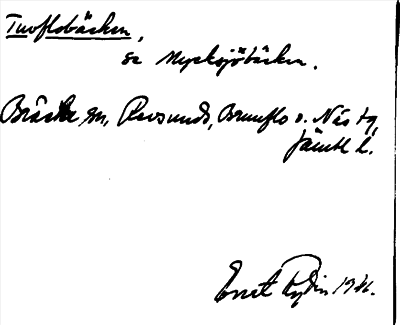 Tuvflobäcken,
se Mycksjöbäcken.
Bräcke sn, Revsunds, Brunflo o. Näs tg,
Jämtl l.
Ernst Rydin 1941.